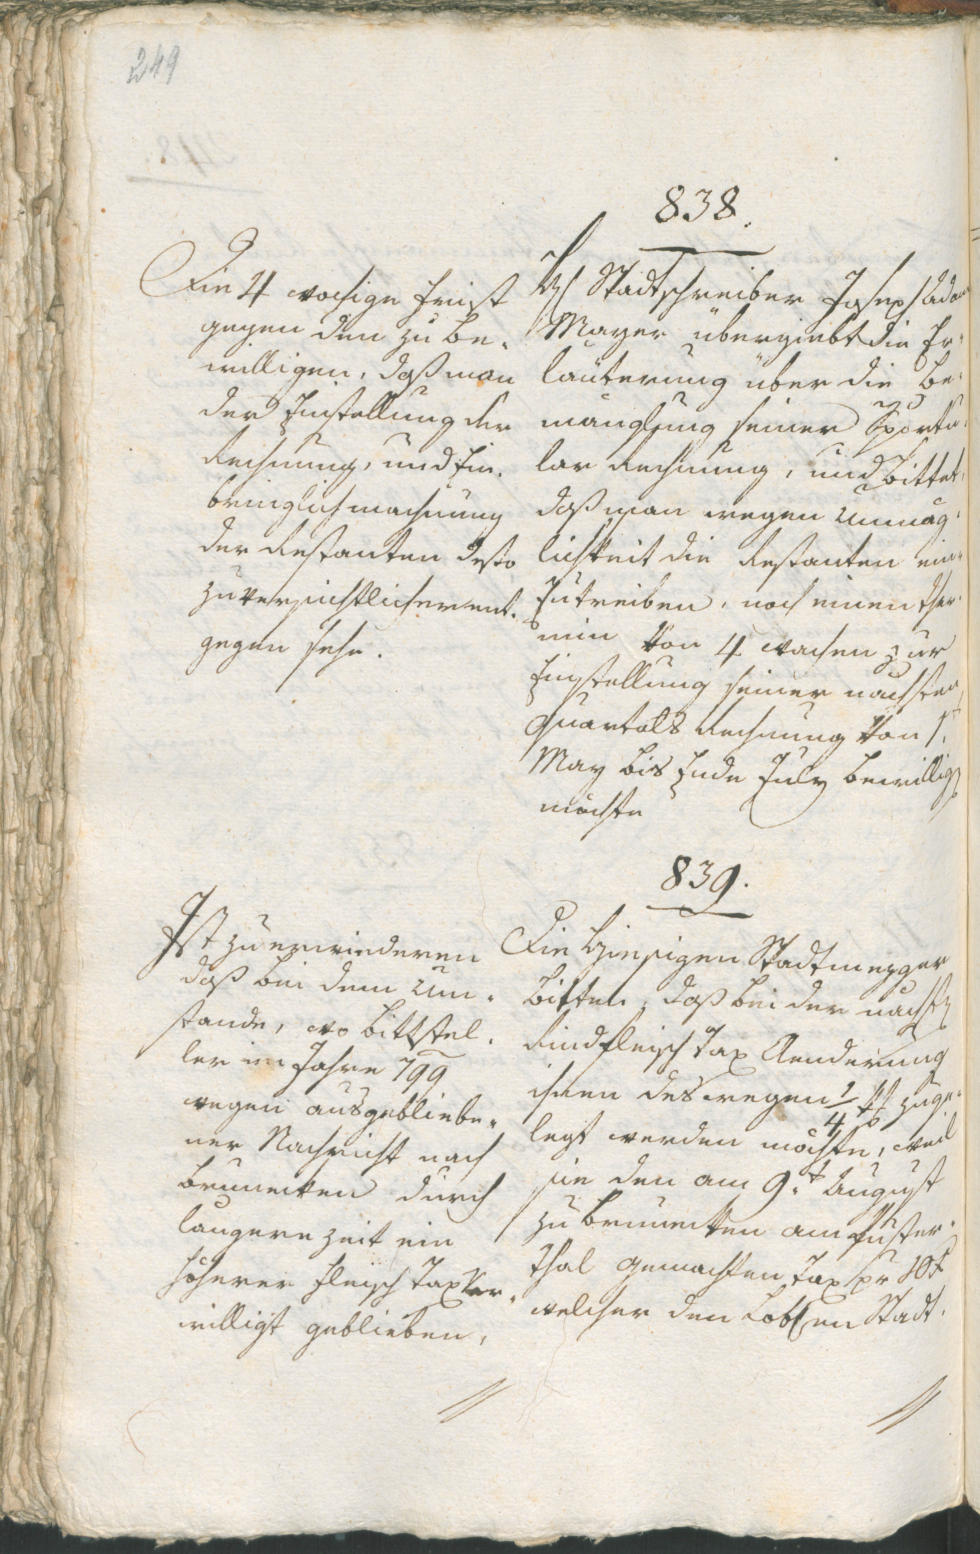 249
838.
Die 4 wochige Frist
gegen den zu be¬
willigen, daß man
der Einstellung der
Rechnung, und Ein¬
bringlichmachung
der Restanten desto
zuversichtlicher ent¬
gegen sehe.
H Stadtschreiber Joseph Adam
Mayer übergiebt die Er¬
läuterung über die Be¬
mänglung seiner Sportu¬
lar Rechnung, und bittet,
daß man wegen Unmög¬
lichkeit die Restanten ein¬
zutreiben, noch einen Ther¬
min von 4 wochen zur
Einstellung seiner nächsten
Quartals Rechnung von 1.
May bis Ende July bewillig
möchte
839.
Ist zu erwiederen
daß bei dem Um¬
stande, wo Bittstel¬
ler im Jahre 799
wegen ausgebliebe¬
ner Nachricht nach
Brunecken durch
langere Zeit ein
höherer Fleisch Tax ver¬
willigt geblieben,
Die hiesigen Stadtmezger
bitten, daß bei der nächst
Rindfleisch Tax Aenderung
ihnen deswegen 1/4 x zuge¬
legt werden möchte, weil
sie den am 9.t August
zu Brunecken am Puster¬
thal gemachten Tax pr 10 x
welcher den Lobl en Stadt¬